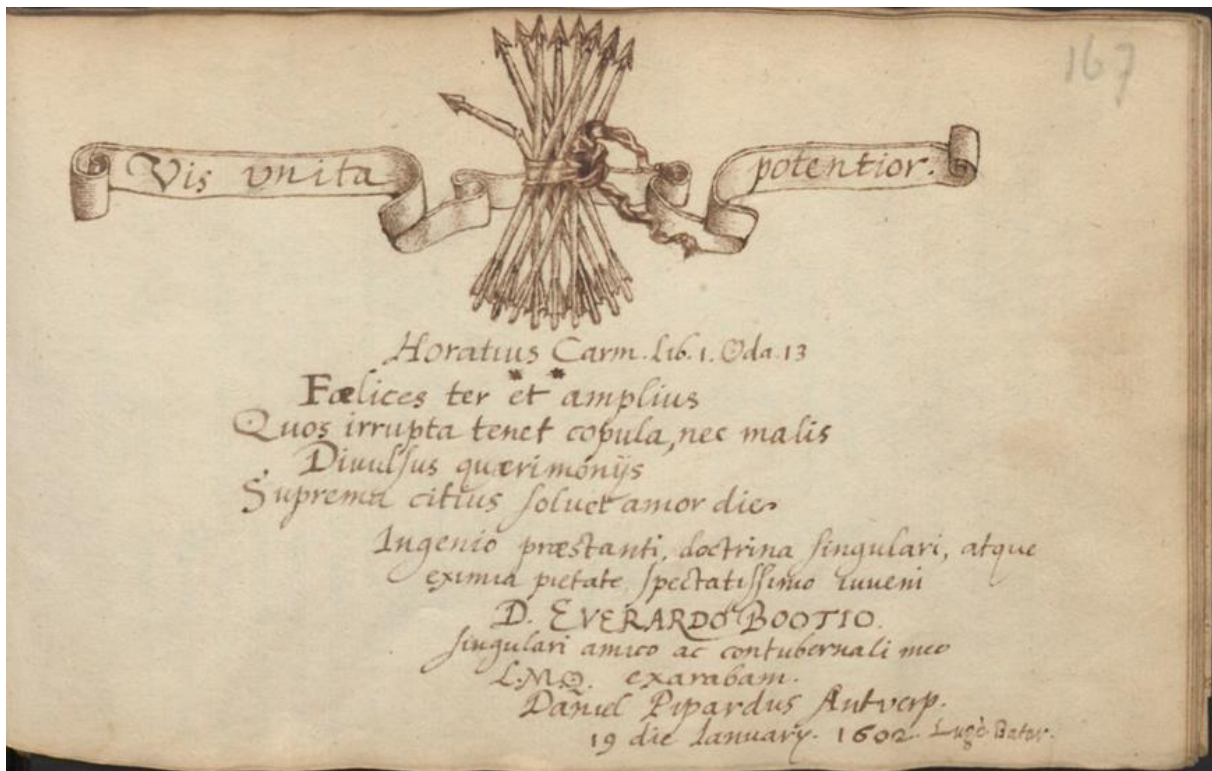 167
Vis vnita potentior.
Horatius Carm. Lib. 1. Oda. 13
Fœlices ter et amplius
Quos irrupta tenet copula, nec malis
Diuulsus quærimonijs
Suprema citius soluet amor die
Ingenio præstanti, doctrina singulari, atque
eximia pietate spectatissimo iuueni
D. EVERARDO BOOTIO.
singulari amico ac contubernali meo
L.M.Q. exarabam.
Daniel Pipardus Antverp.
19 die Ianuarÿ. 1602. Lugd. Batav.